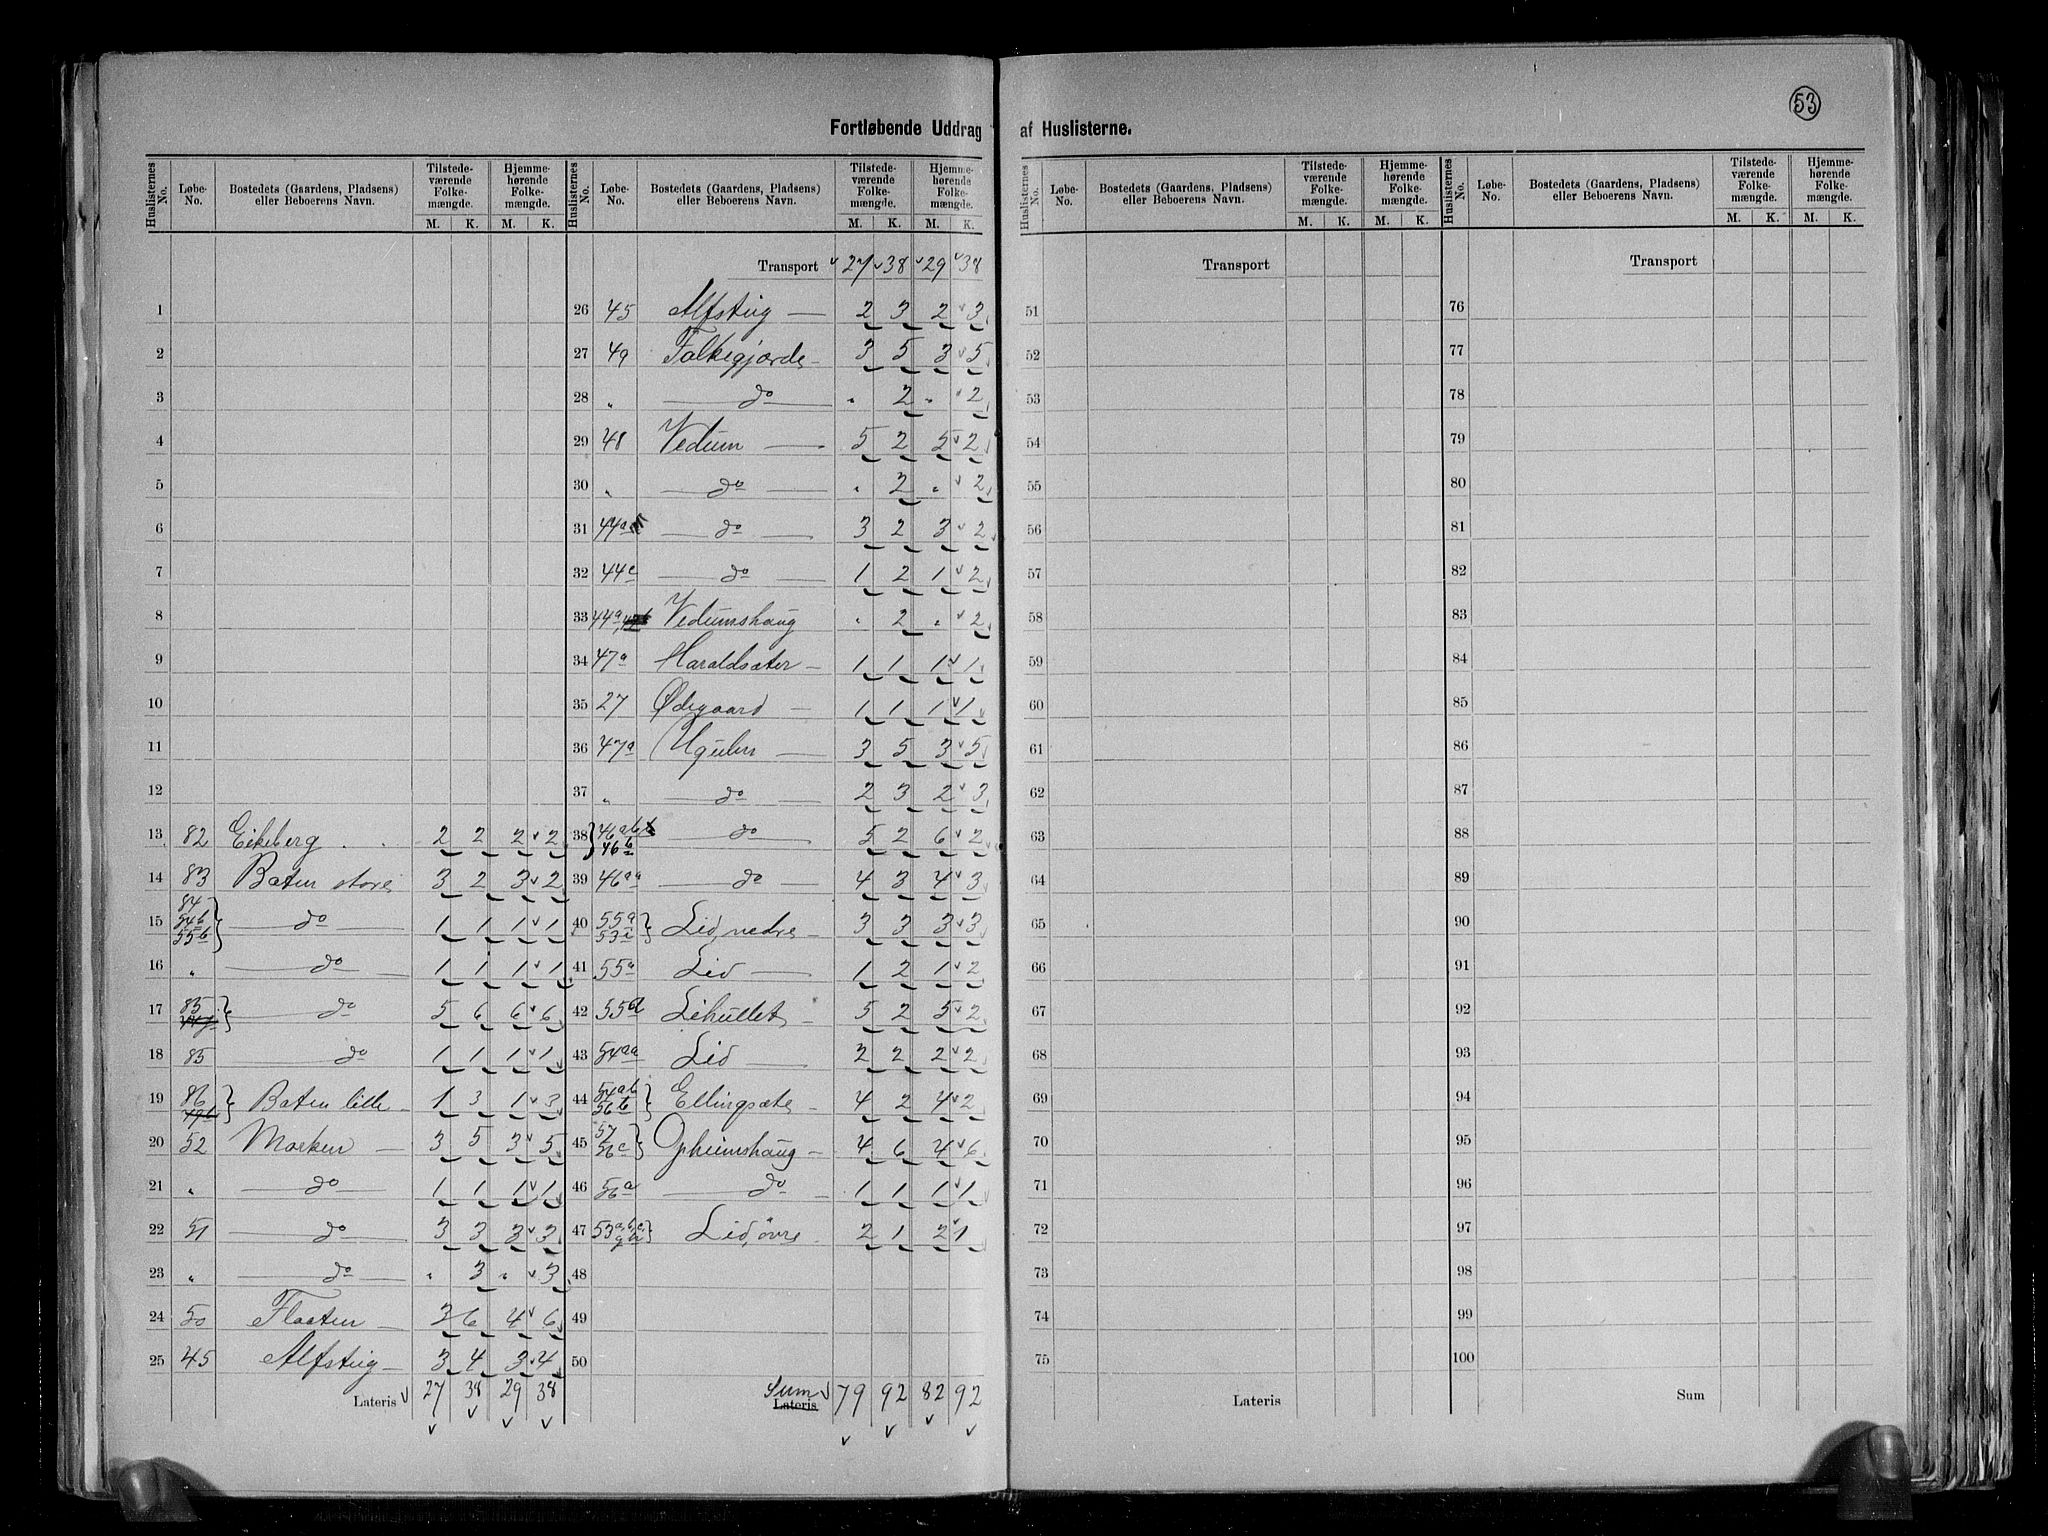 53
Fortløbende Uddrag af Huslisterne.
Huslisternes No. Løbe-No. Bostedets (Gaardens, Pladsens) eller Beboerens Navn. Tilstede-værende Folke-mængde. M. K. Hjemme-hørende Folke-mængde. M. K.
1
2
3
4
5
6
7
8
9
10
11
12
13 82 Eikeberg 2 2 2 2
14 83 Baten store 3 2 3 2
15 84 54b 55b do 1 1 1 1
16 " do 1 1 1 1
17 85 do 5 6 6 6
18 85 do 1 1 1 1
19 86 Baten lille 1 3 1 3
20 52 Marken 3 5 3 5
21 " do 1 1 1 1
22 51 do 3 3 3 3
23 " do " 3 " 3
24 50 Flaaten 3 6 4 6
25 45 Alfstig 3 4 3 4
Lateris 27 38 29 38
Huslisternes No. Løbe-No. Bostedets (Gaardens, Pladsens) eller Beboerens Navn. Tilstede-værende Folke-mængde. M. K. Hjemme-hørende Folke-mængde. M. K.
Transport 27 38 29 38
26 45 Alfstig 2 3 2 3
27 49 Falkegjorde 3 5 3 5
28 " do " 2 " 2
29 48 Vedum 5 2 5 2
30 " do " 2 " 2
31 44a do 3 2 3 2
32 44c do 1 2 1 2
33 44a Vedumshaug " 2 " 2
34 47a Haraldsæter 1 1 1 1
35 27 Ødegaard 1 1 1 1
36 47a Ugulen 3 5 3 5
37 " do 2 3 2 3
38 46ab 46b do 5 2 6 2
39 46aa do 4 3 4 3
40 55a 53i Lid, nedre 3 3 3 3
41 55a Lid 1 2 1 2
42 55a Lihullet 5 2 5 2
43 54aa Lid 2 2 2 2
44 54ab 56b Ellingsæte 4 2 4 2
45 57 56c Opheimshaug 4 6 4 6
46 56a do 1 1 1 1
47 53 Lid, övre 2 1 2 1
48
49
50
Sum Lateris 79 92 82 92
Huslisternes No. Løbe-No. Bostedets (Gaardens, Pladsens) eller Beboerens Navn. Tilstede-værende Folke-mængde. M. K. Hjemme-hørende Folke-mængde. M. K.
Transport
51
52
53
54
55
56
57
58
59
60
61
62
63
64
65
66
67
68
69
70
71
72
73
74
75
Lateris
Huslisternes No. Løbe-No. Bostedets (Gaardens, Pladsens) eller Beboerens Navn. Tilstede-værende Folke-mængde. M. K. Hjemme-hørende Folke-mængde. M. K.
Transport
76
77
78
79
80
81
82
83
84
85
86
87
88
89
90
91
92
93
94
95
96
97
98
99
100
Sum